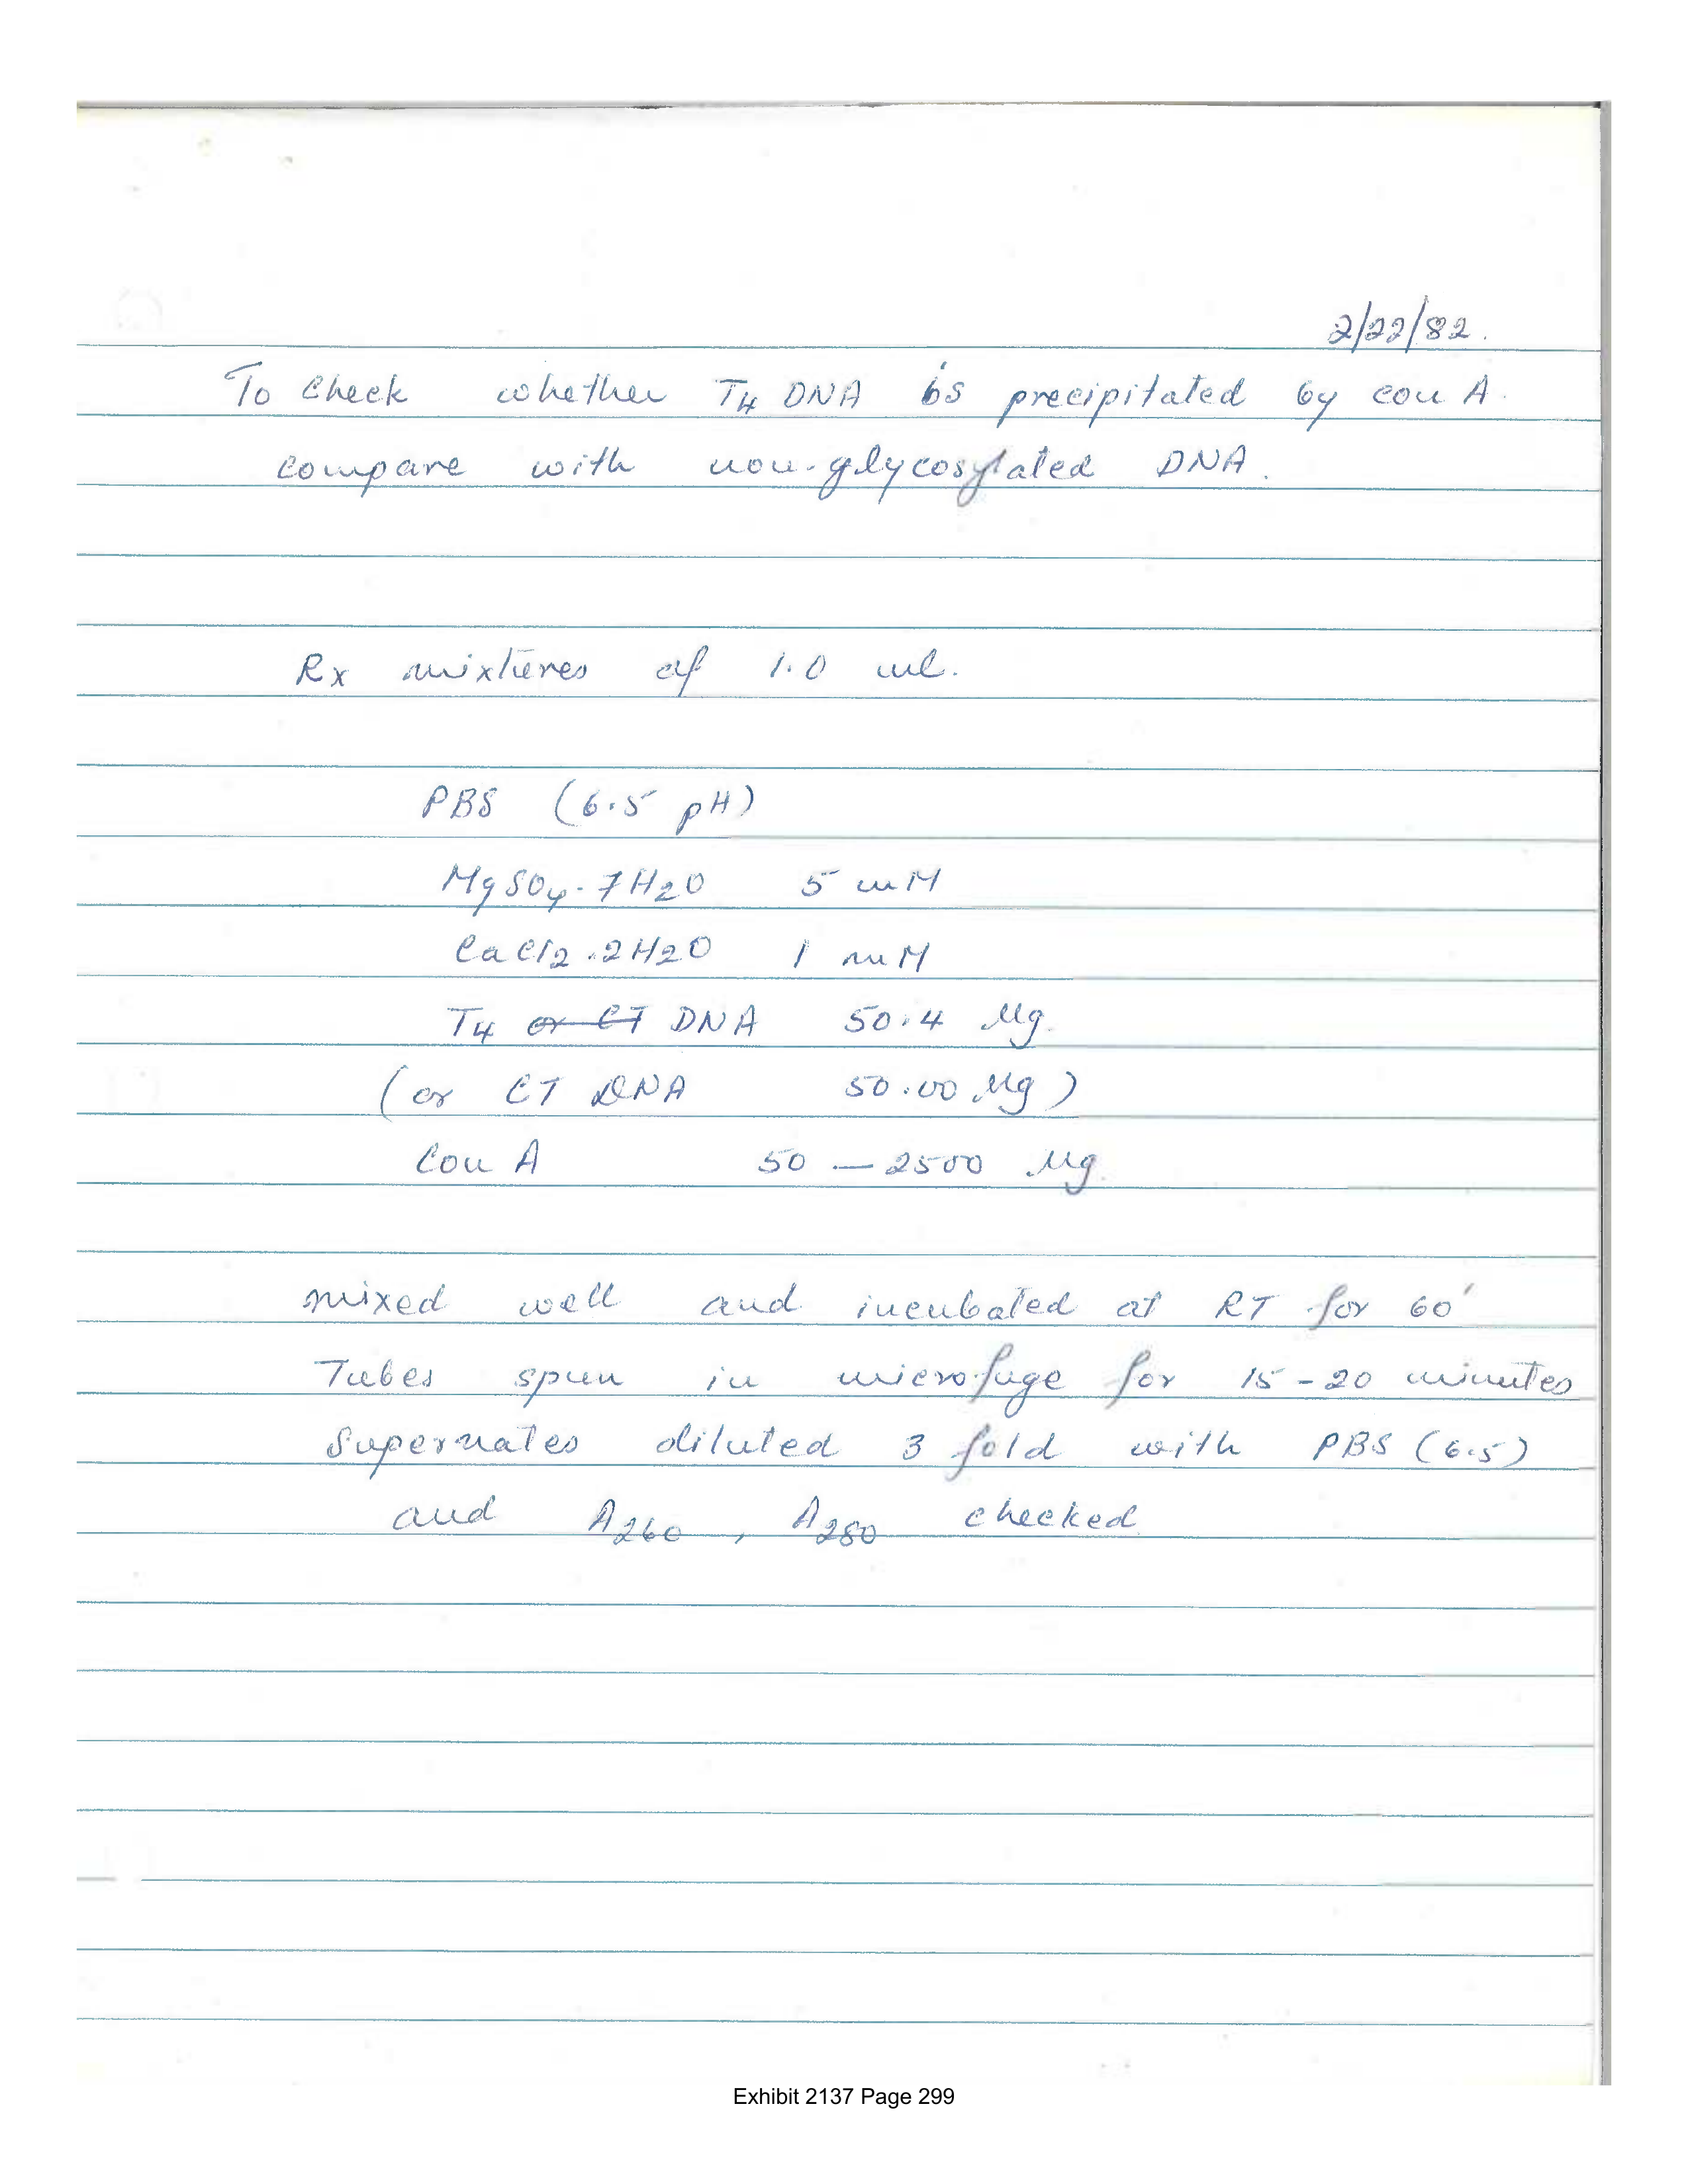 2/22/82.
To Check whether T4 DNA is precipitated by con A.
compare with non-glycosylated DNA.
Rx mixtures of 1.0 ml.
PBS (6.5 pH)
MgSO4·7H2O 5 mM
CaCl2·2H2O 1 mM
T4 or CT DNA 50.4 µg.
(or CT DNA 50.00 µg)
Con A 50 — 2500 µg.
mixed well and incubated at RT for 60'
Tubes spun in microfuge for 15-20 minutes
Supernates diluted 3 fold with PBS (6.5)
and A260, A280 checked
Exhibit 2137 Page 299